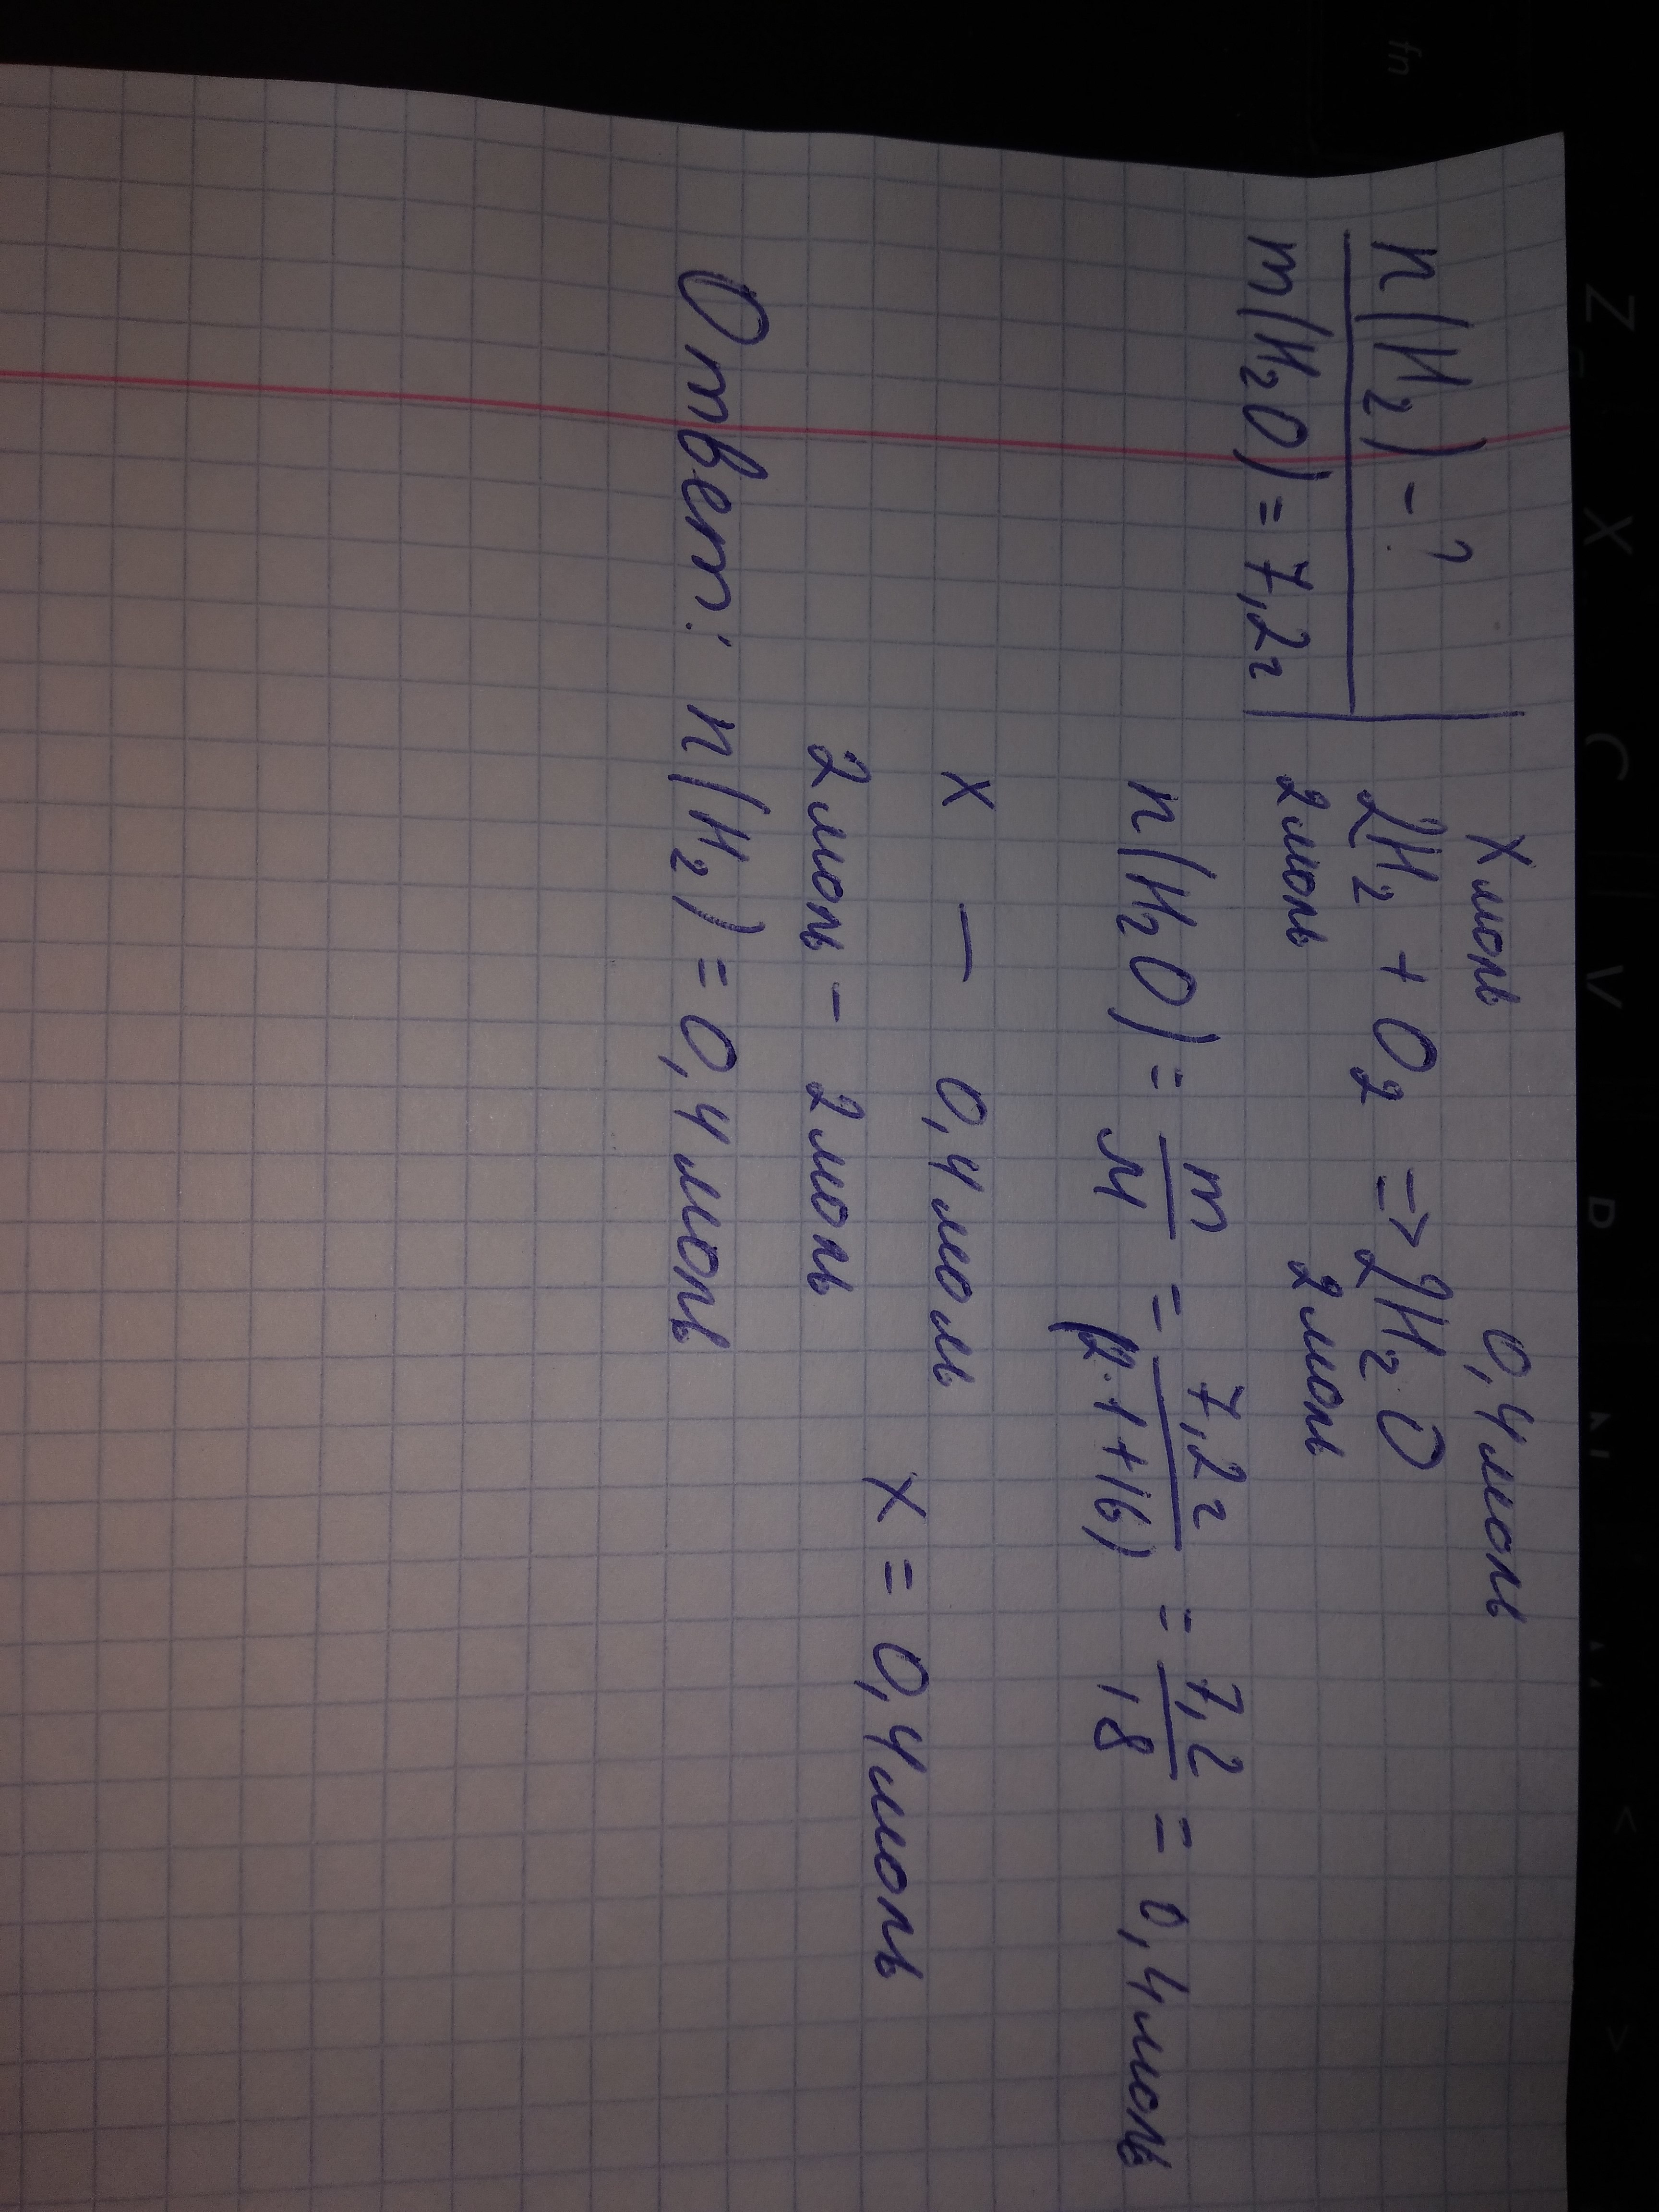 n(H₂) - ?
m(H₂O) = 7,2г
х моль 0,4моль
2H₂ + O₂ => 2H₂O
2моль 2моль
n(H₂O) = m/M = 7,2г/(2·1+16) = 7,2/18 = 0,4моль
х — 0,4моль
2моль - 2моль
х = 0,4моль
Ответ: n(H₂) = 0,4моль
fn
Z X C V